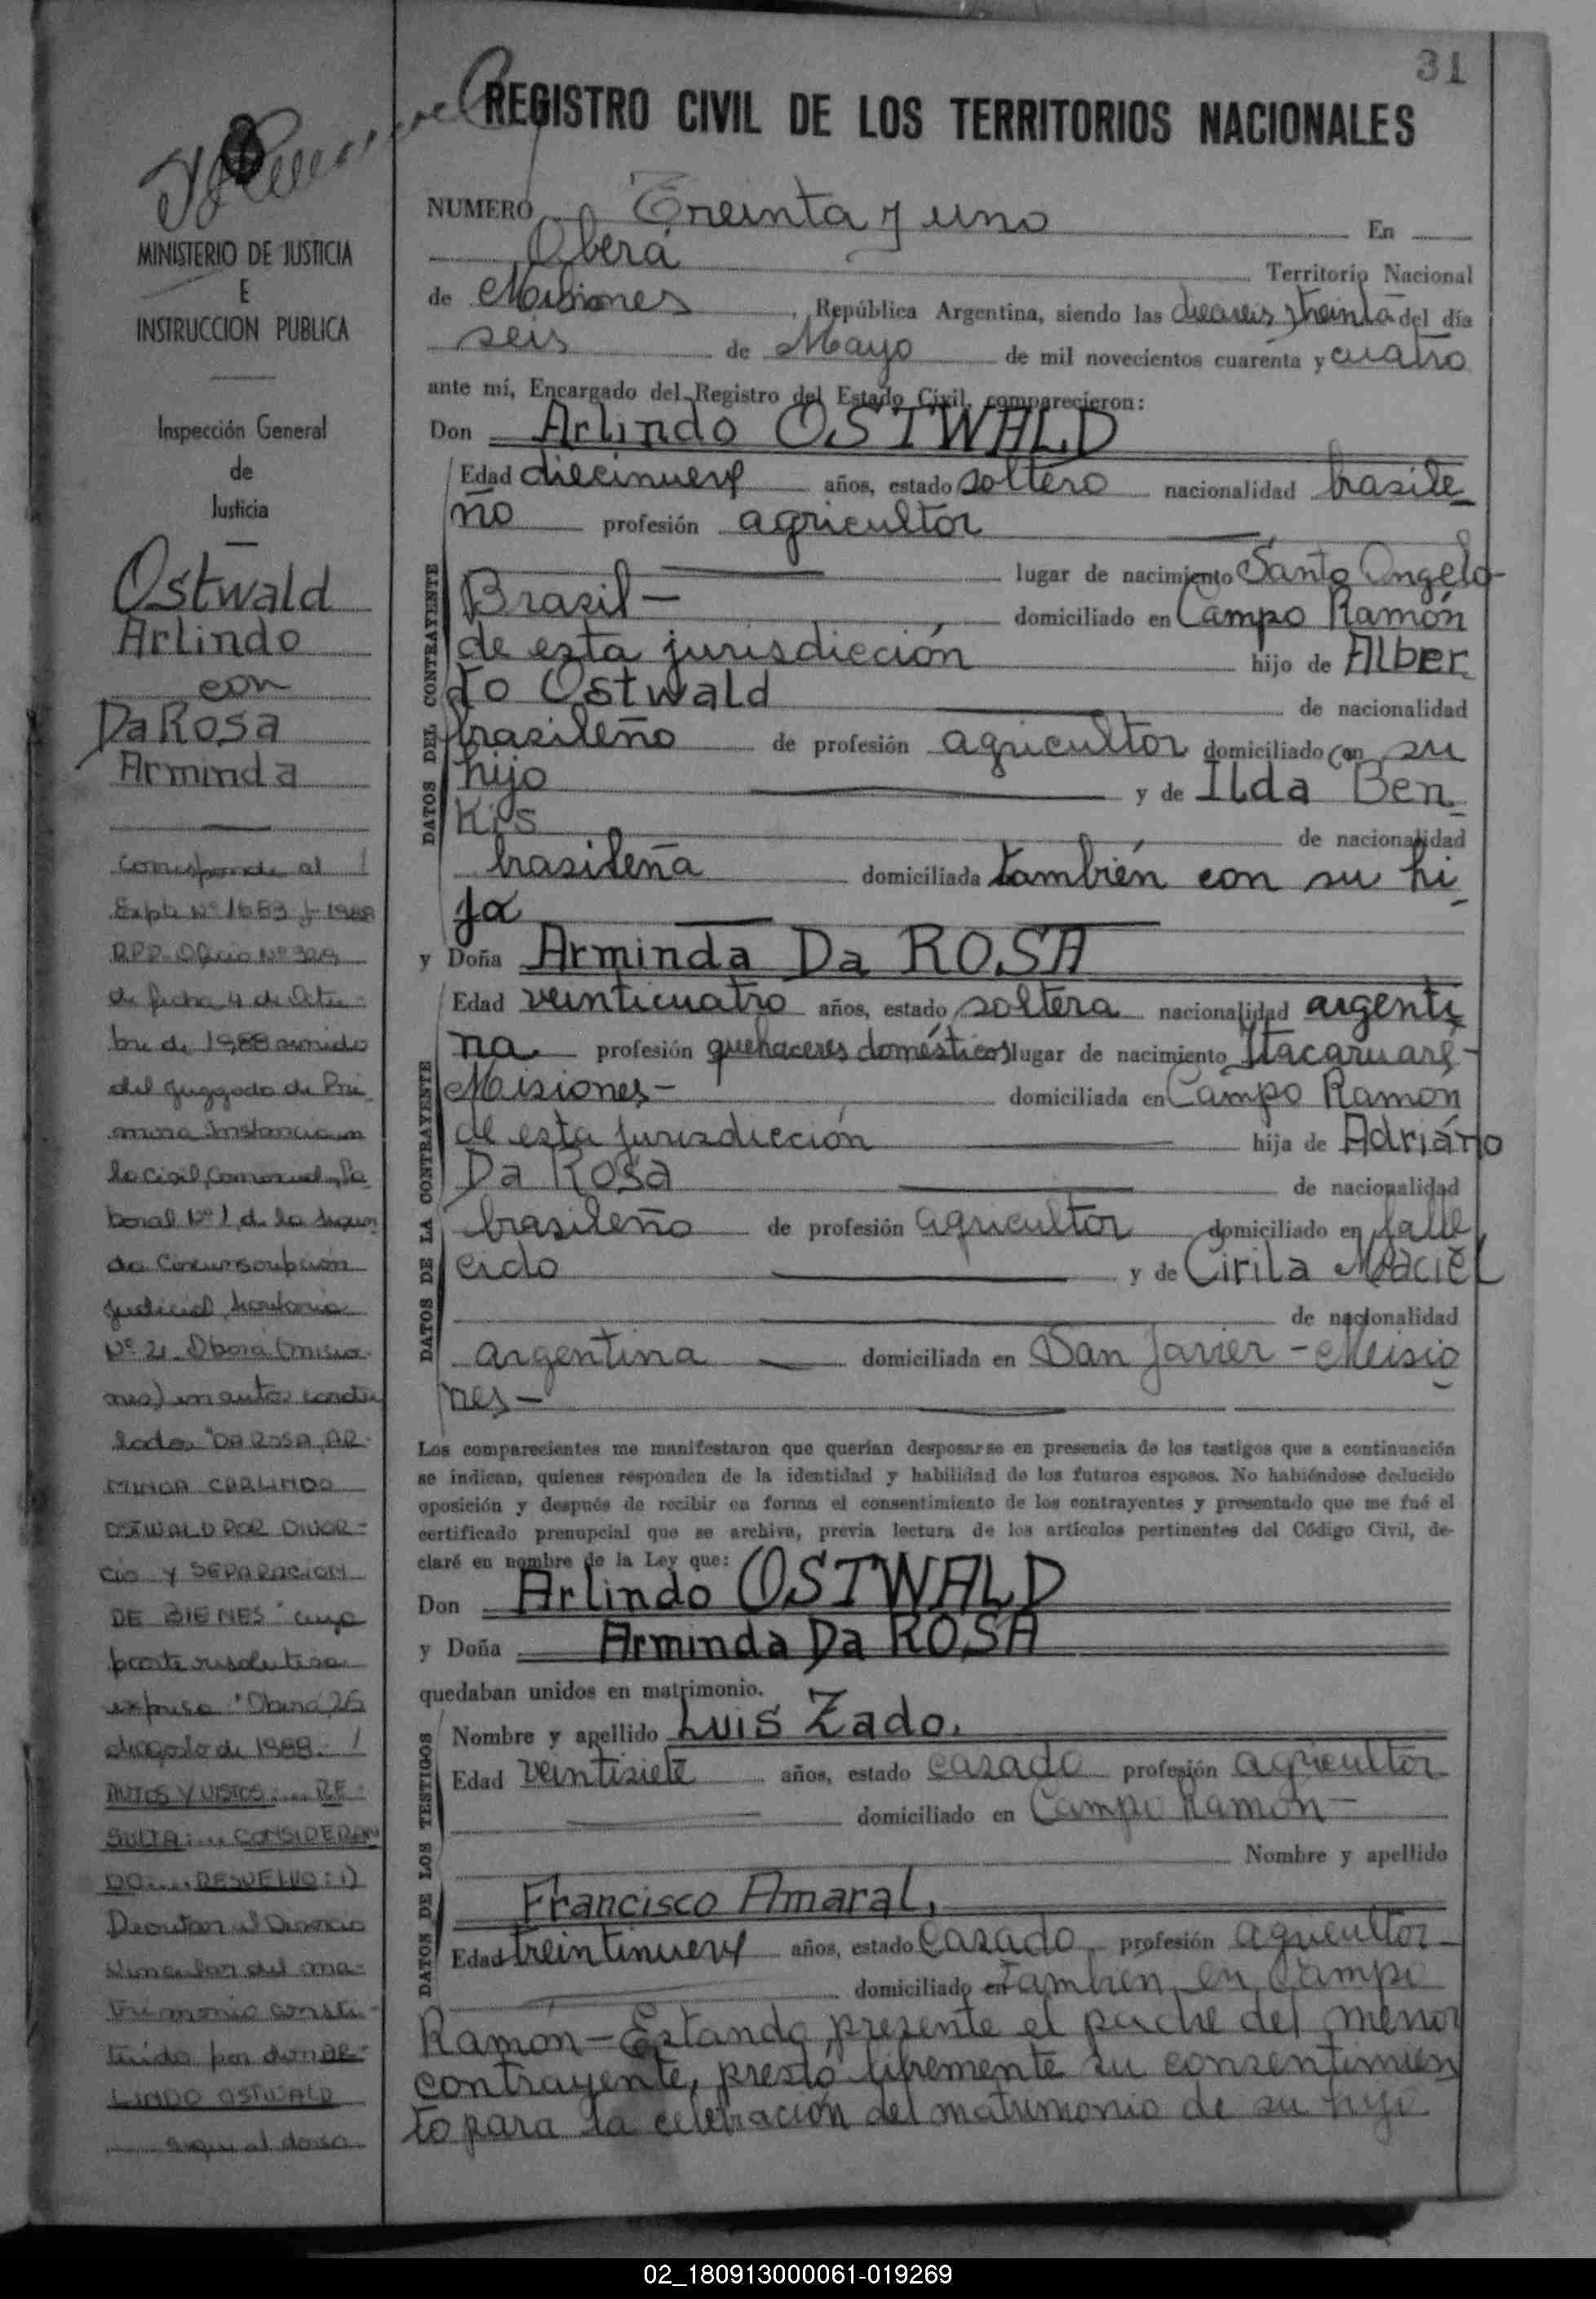 31
REGISTRO CIVIL DE LOS TERRITORIOS NACIONALES
MINISTERIO DE JUSTICIA
E
INSTRUCCION PUBLICA
Inspección General
de
Justicia
Ostwald
Arlindo
con
Da Rosa
Arminda
corresponde al
Expte Nº 1653 - 1988
Oficio Nº
de fecha 4 de Octu-
bre de 1988 venido
del Juzgado de Pri-
mera Instancia en
lo Civil, Comercial, La-
boral Nº 1 de la Segun-
da Circunscripción
Judicial, Secretaria
Nº 2. Oberá (Misio-
nes) en autos caratu-
lados "DA ROSA, AR-
MINDA C/ARLINDO
OSTWALD POR DIVOR-
CIO Y SEPARACION
DE BIENES" cuya
parte resolutiva
expresa: "Oberá, 26
de agosto de 1988.- /
AUTOS Y VISTOS: .... RE-
SULTA: ... CONSIDERAN
DO: .... RESUELVO: 1)
Decretar el Divorcio
Vincular del ma-
trimonio consti-
tuido por don AR-
LINDO OSTWALD
sigue al dorso
NUMERO Treinta y uno En
Oberá Territorio Nacional
de Misiones, República Argentina, siendo las dieciseis y treinta del día
seis de Mayo de mil novecientos cuarenta y cuatro
ante mí, Encargado del Registro del Estado Civil, comparecieron:
Don Arlindo OSTWALD
DATOS DEL CONTRAYENTE
Edad diecinueve años, estado soltero nacionalidad brasile-
ño profesión agricultor
lugar de nacimiento Santo Angelo-
Brasil- domiciliado en Campo Ramón
de esta jurisdicción hijo de Alber
to Ostwald de nacionalidad
brasileño de profesión agricultor domiciliado con su
hijo y de Ilda Ben
Kis de nacionalidad
brasileña domiciliada también con su hi-
jo
y Doña Arminda Da ROSA
DATOS DE LA CONTRAYENTE
Edad veinticuatro años, estado soltera nacionalidad argenti
na. profesión quehaceres domésticos lugar de nacimiento Itacaruaré-
Misiones- domiciliada en Campo Ramón
de esta jurisdicción hija de Adriáno
Da Rosa de nacionalidad
brasileño de profesión agricultor domiciliado en falle
cido y de Cirila Maciel
de nacionalidad
argentina domiciliada en San Javier - Misio
nes-
Los comparecientes me manifestaron que querían desposarse en presencia de los testigos que a continuación
se indican, quienes responden de la identidad y habilidad de los futuros esposos. No habiéndose deducido
oposición y después de recibir en forma el consentimiento de los contrayentes y presentado que me fué el
certificado prenupcial que se archiva, previa lectura de los artículos pertinentes del Código Civil, de-
claré en nombre de la Ley que:
Don Arlindo OSTWALD
y Doña Arminda Da ROSA
quedaban unidos en matrimonio.
DATOS DE LOS TESTIGOS
Nombre y apellido Luis Zado.
Edad veintisiete años, estado casado profesión agricultor
domiciliado en Campo Ramón-
Nombre y apellido
Francisco Amaral,
Edad treintinueve años, estado casado, profesión agricultor
domiciliado en también en Campo
Ramón-Estando presente el padre del menor
contrayente, prestó libremente su consentimien
to para la celebración del matrimonio de su hijo
02_180913000061-019269